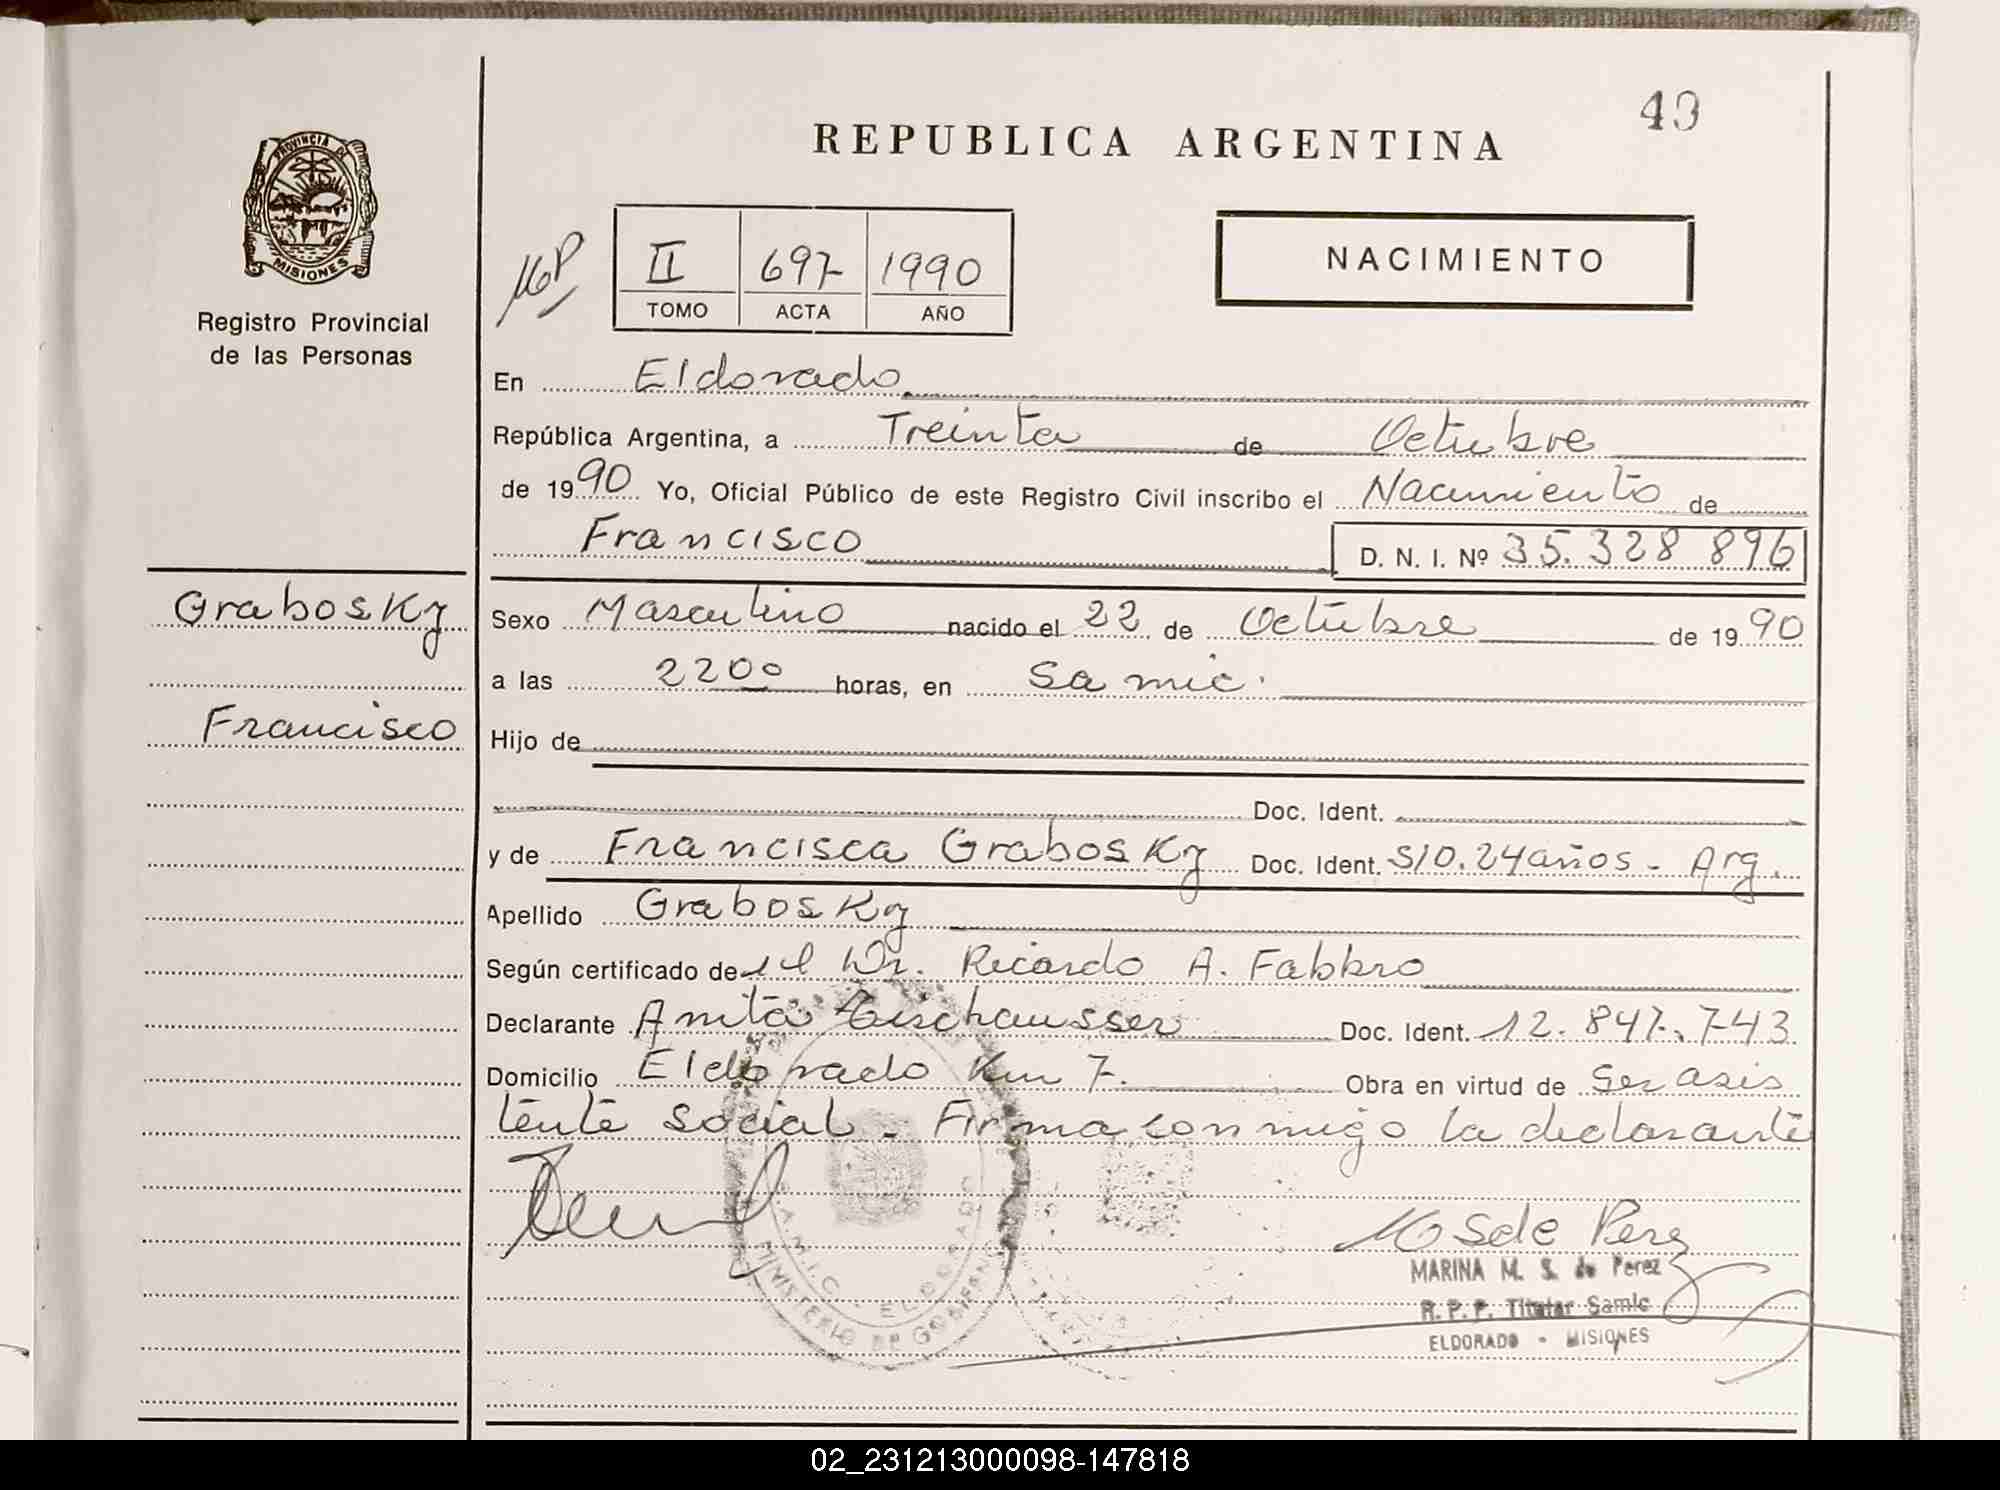 43
REPUBLICA ARGENTINA
PROVINCIA DE
MISIONES
Registro Provincial
de las Personas
II 697 1990
TOMO ACTA AÑO
NACIMIENTO
En Eldorado
República Argentina, a Treinta de Octubre
de 1990 Yo, Oficial Público de este Registro Civil inscribo el Nacimiento de
Francisco D. N. I. Nº 35.328 896
Grabosky
Francisco
Sexo Masculino nacido el 22 de Octubre de 1990
a las 2200 horas, en Samic.
Hijo de
Doc. Ident.
y de Francisca Grabosky Doc. Ident. S/D. 24 años - Arg.
Apellido Grabosky
Según certificado de el Dr. Ricardo A. Fabbro
Declarante Anita Doc. Ident. 12.847.743
Domicilio Eldorado Km 7. Obra en virtud de Ser asis
tente social - Firma conmigo la declarante
S.A.M.I.C. - ELDORADO
MINISTERIO DE GOBIERNO
M S de Perez
MARINA M. S. de Perez
R. P. P. Titular Samic
ELDORADO - MISIONES
02_231213000098-147818